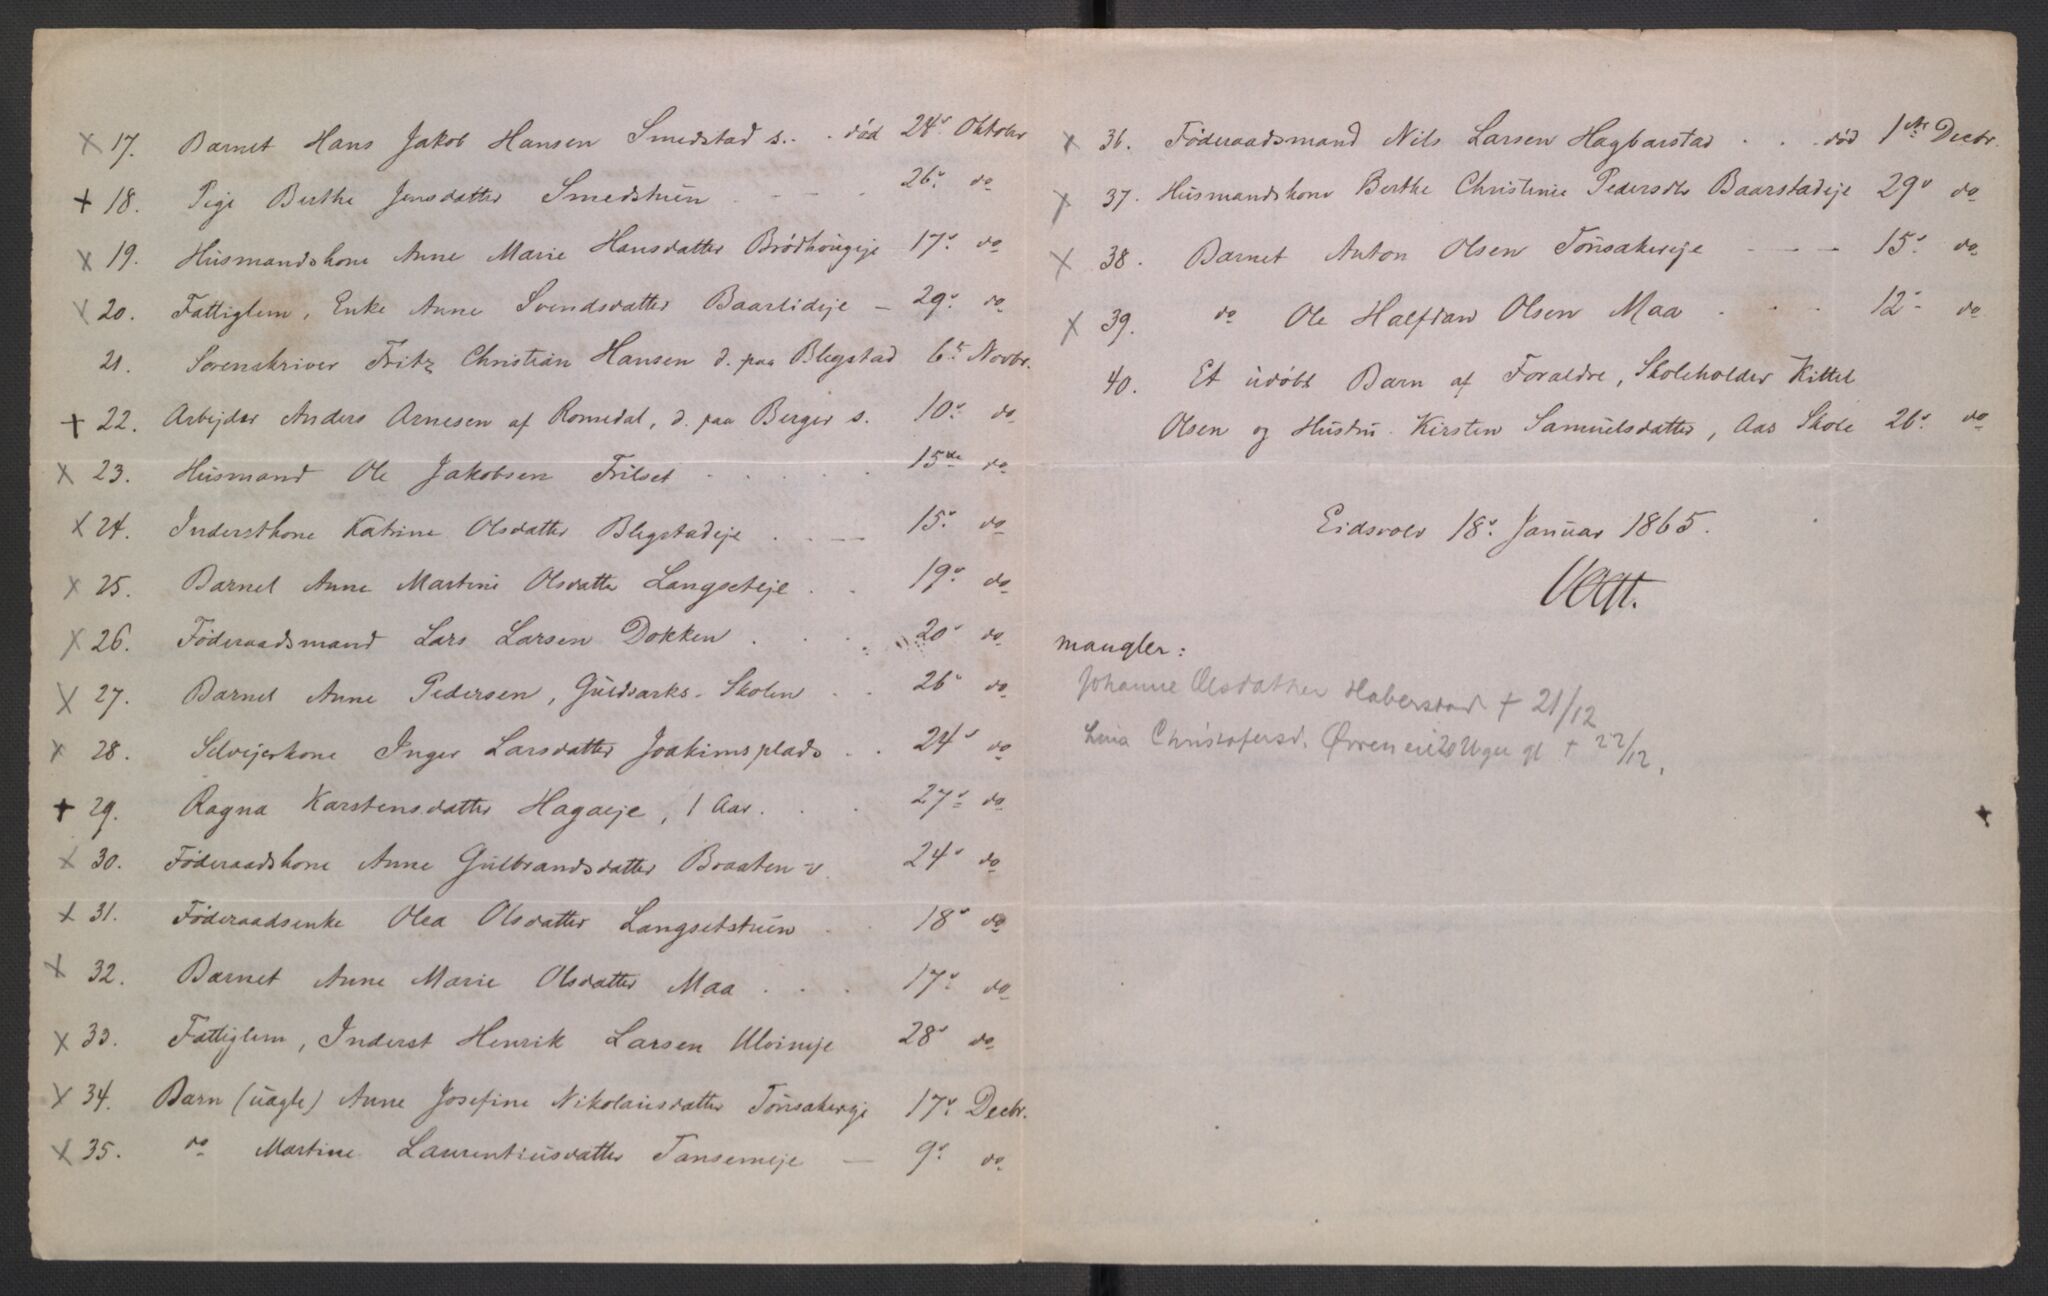 x 17. Barnet Hans Jakob Hansen Smedstad s. . . død 24de Oktober
+ 18. Pige Berthe Jensdatter Smedstuen - - . 26de do
x 19. Husmandskone Anne Marie Hansdatter Brødhougeje 17de do
x 20. Fattiglem, Enke Anne Svendsdatter Baarlideje - 29de do
21. Sorenskriver Fritz Christian Hansen d. paa Blegstad 6te Novbr.
+ 22. Arbejder Anders Arnesen af Romedal, d. paa Berger s. 10de do
x 23. Husmand Ole Jakobsen Frilset . . . . 15de do
x 24. Inderstkone Katrine Olsdatter Blegstadeje . . - - 15de do
x 25. Barnet Anne Martine Olsdatter Langseteje . . 19de do
x 26. Føderaadsmand Lars Larsen Dokken . . . 20de do
x 27. Barnet Anne Pedersen, Guldsarks-Skolen . . 26de do
x 28. Selvejerkone Inger Larsdatter Joakimsplads . . 24de do
+ 29. Ragna Karstensdatter Hagaeje, 1 Aar . . . 27de do
x 30. Føderaadskone Anne Gulbrandsdatter Braaten v. 24de do
x 31. Føderaadsenke Olea Olsdatter Langsetstuen . . 18de do
x 32. Barnet Anne Marie Olsdatter Maa . . . 17de do
x 33. Fattiglem, Inderst Henrik Larsen Ulvineje 28de do
x 34. Barn (uægte) Anne Josefine Nikolaisdatter Tønsakereje 17de Decbr.
x 35. do Martine Laurentiusdatter Tansemeje - 9de do
x 36. Føderaadsmand Nils Larsen Hagbarstad . . . død 1ste Decbr.
x 37. Husmandskone Berthe Christine Pedersdtr Baarstadeje 29de do
x 38. Barnet Anton Olsen Tønsakereje - - - 15de do
x 39. do Ole Halfdan Olsen Maa . . . 12te do
40. Et udøbt Barn af Foraldre, Skoleholder Kittel
Olsen og Hustru Kirsten Samuelsdatter, Aas Skole 26de do
Eidsvold 18de Januar 1865.
mangler:
Johanne Olsdatter Haberstad + 21/12
Lina Christofersd. Ørren 20 Uger gl + 22/12.